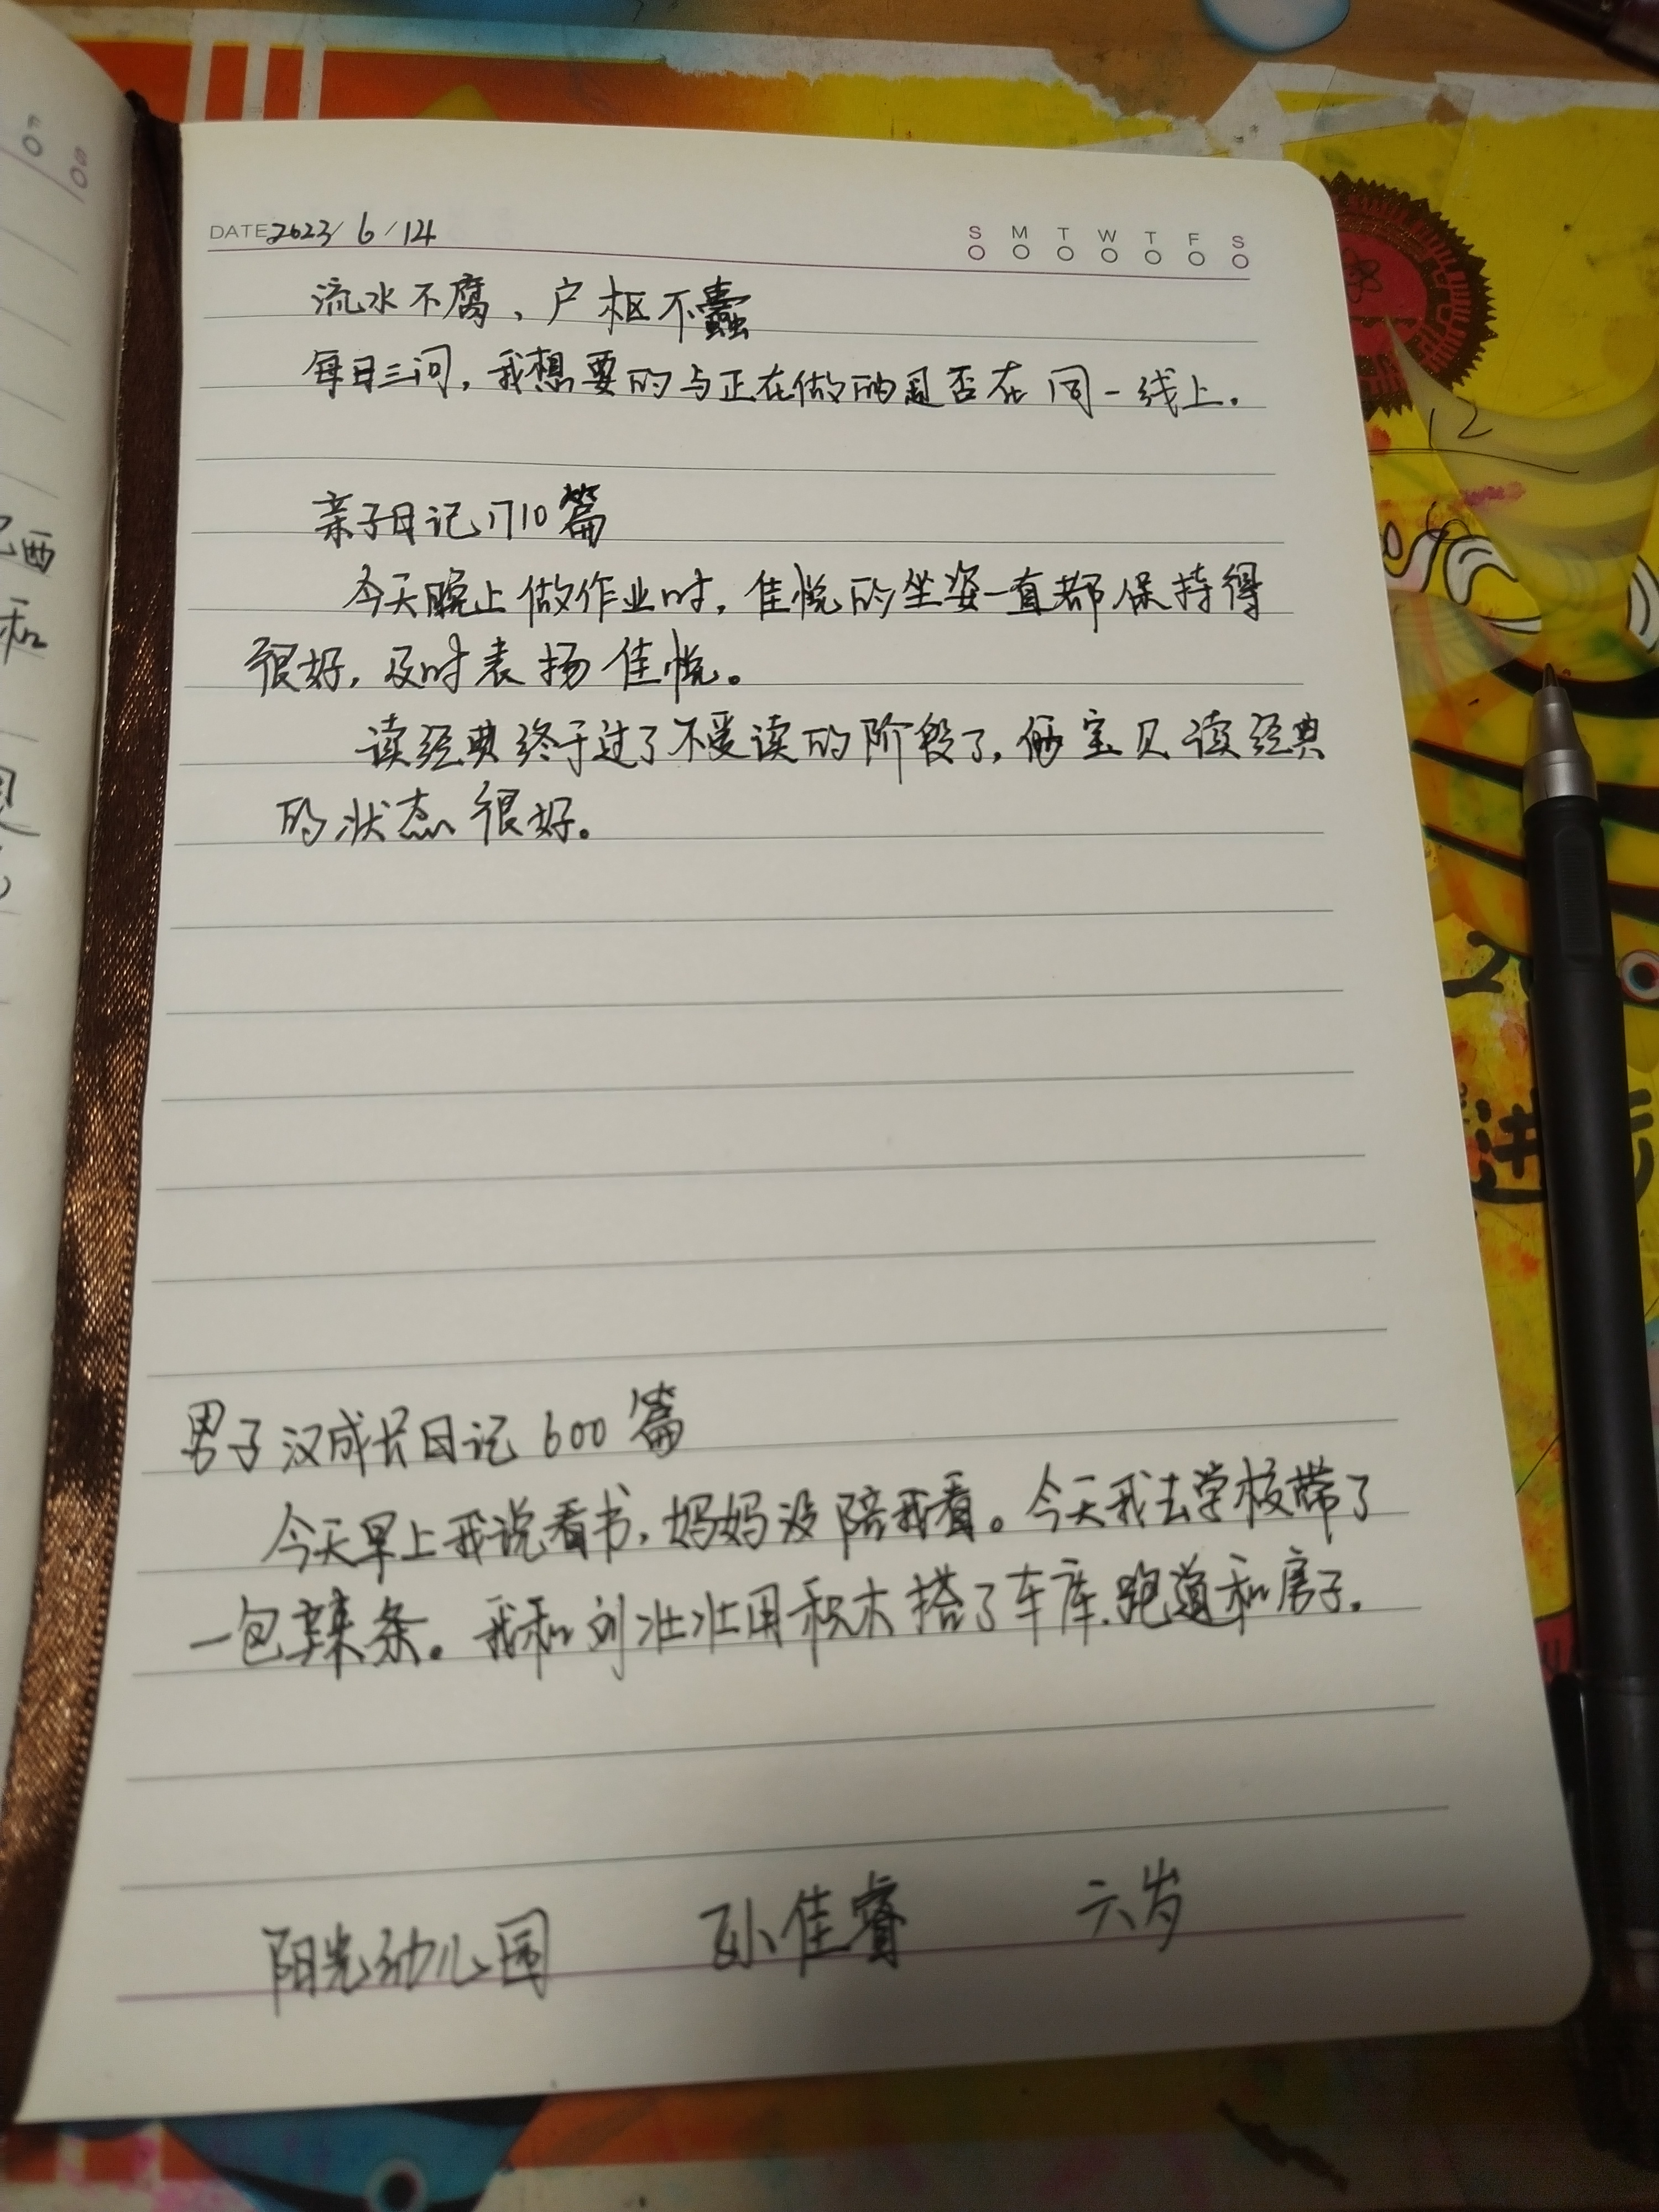 DATE 2023/6/14
S M T W T F S
流水不腐、户枢不蠹
每日三问，我想要的与正在做的是否在同一线上。
亲子日记1710篇
今天晚上做作业时，佳悦的坐姿一直都保持得
很好，及时表扬佳悦。
读经典终于过了不爱读的阶段了，俩宝贝读经典
的状态很好。
男子汉成长日记600篇
今天早上我说看书，妈妈没陪我看。今天我去学校带了
一包辣条。我和刘壮壮用积木搭了车库、跑道和房子。
阳光幼儿园 孙佳睿 六岁
F S
西
和
12
进